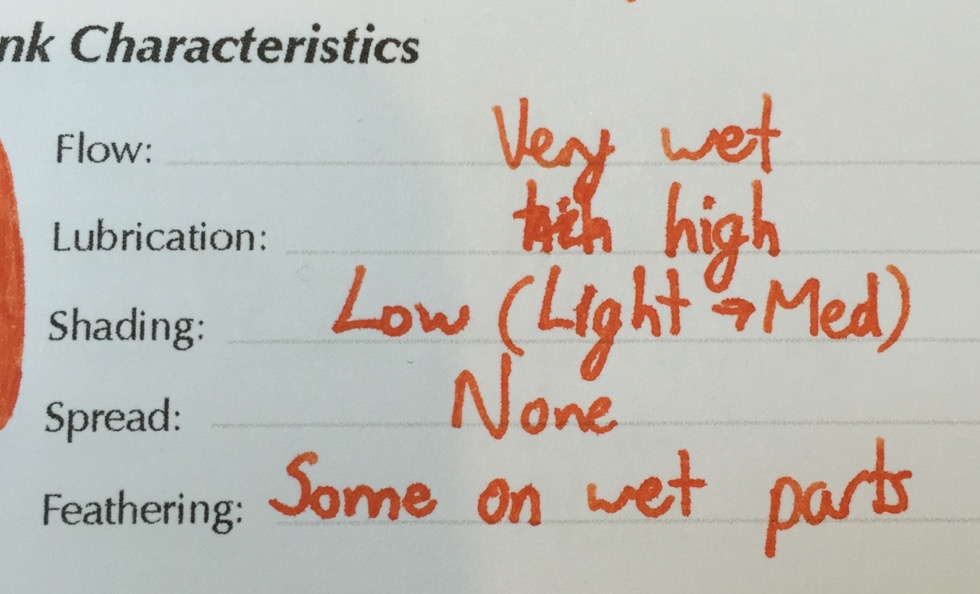 nk Characteristics
Flow: Very wet
Lubrication: high
Shading: Low (Light → Med)
Spread: None
Feathering: Some on wet parts